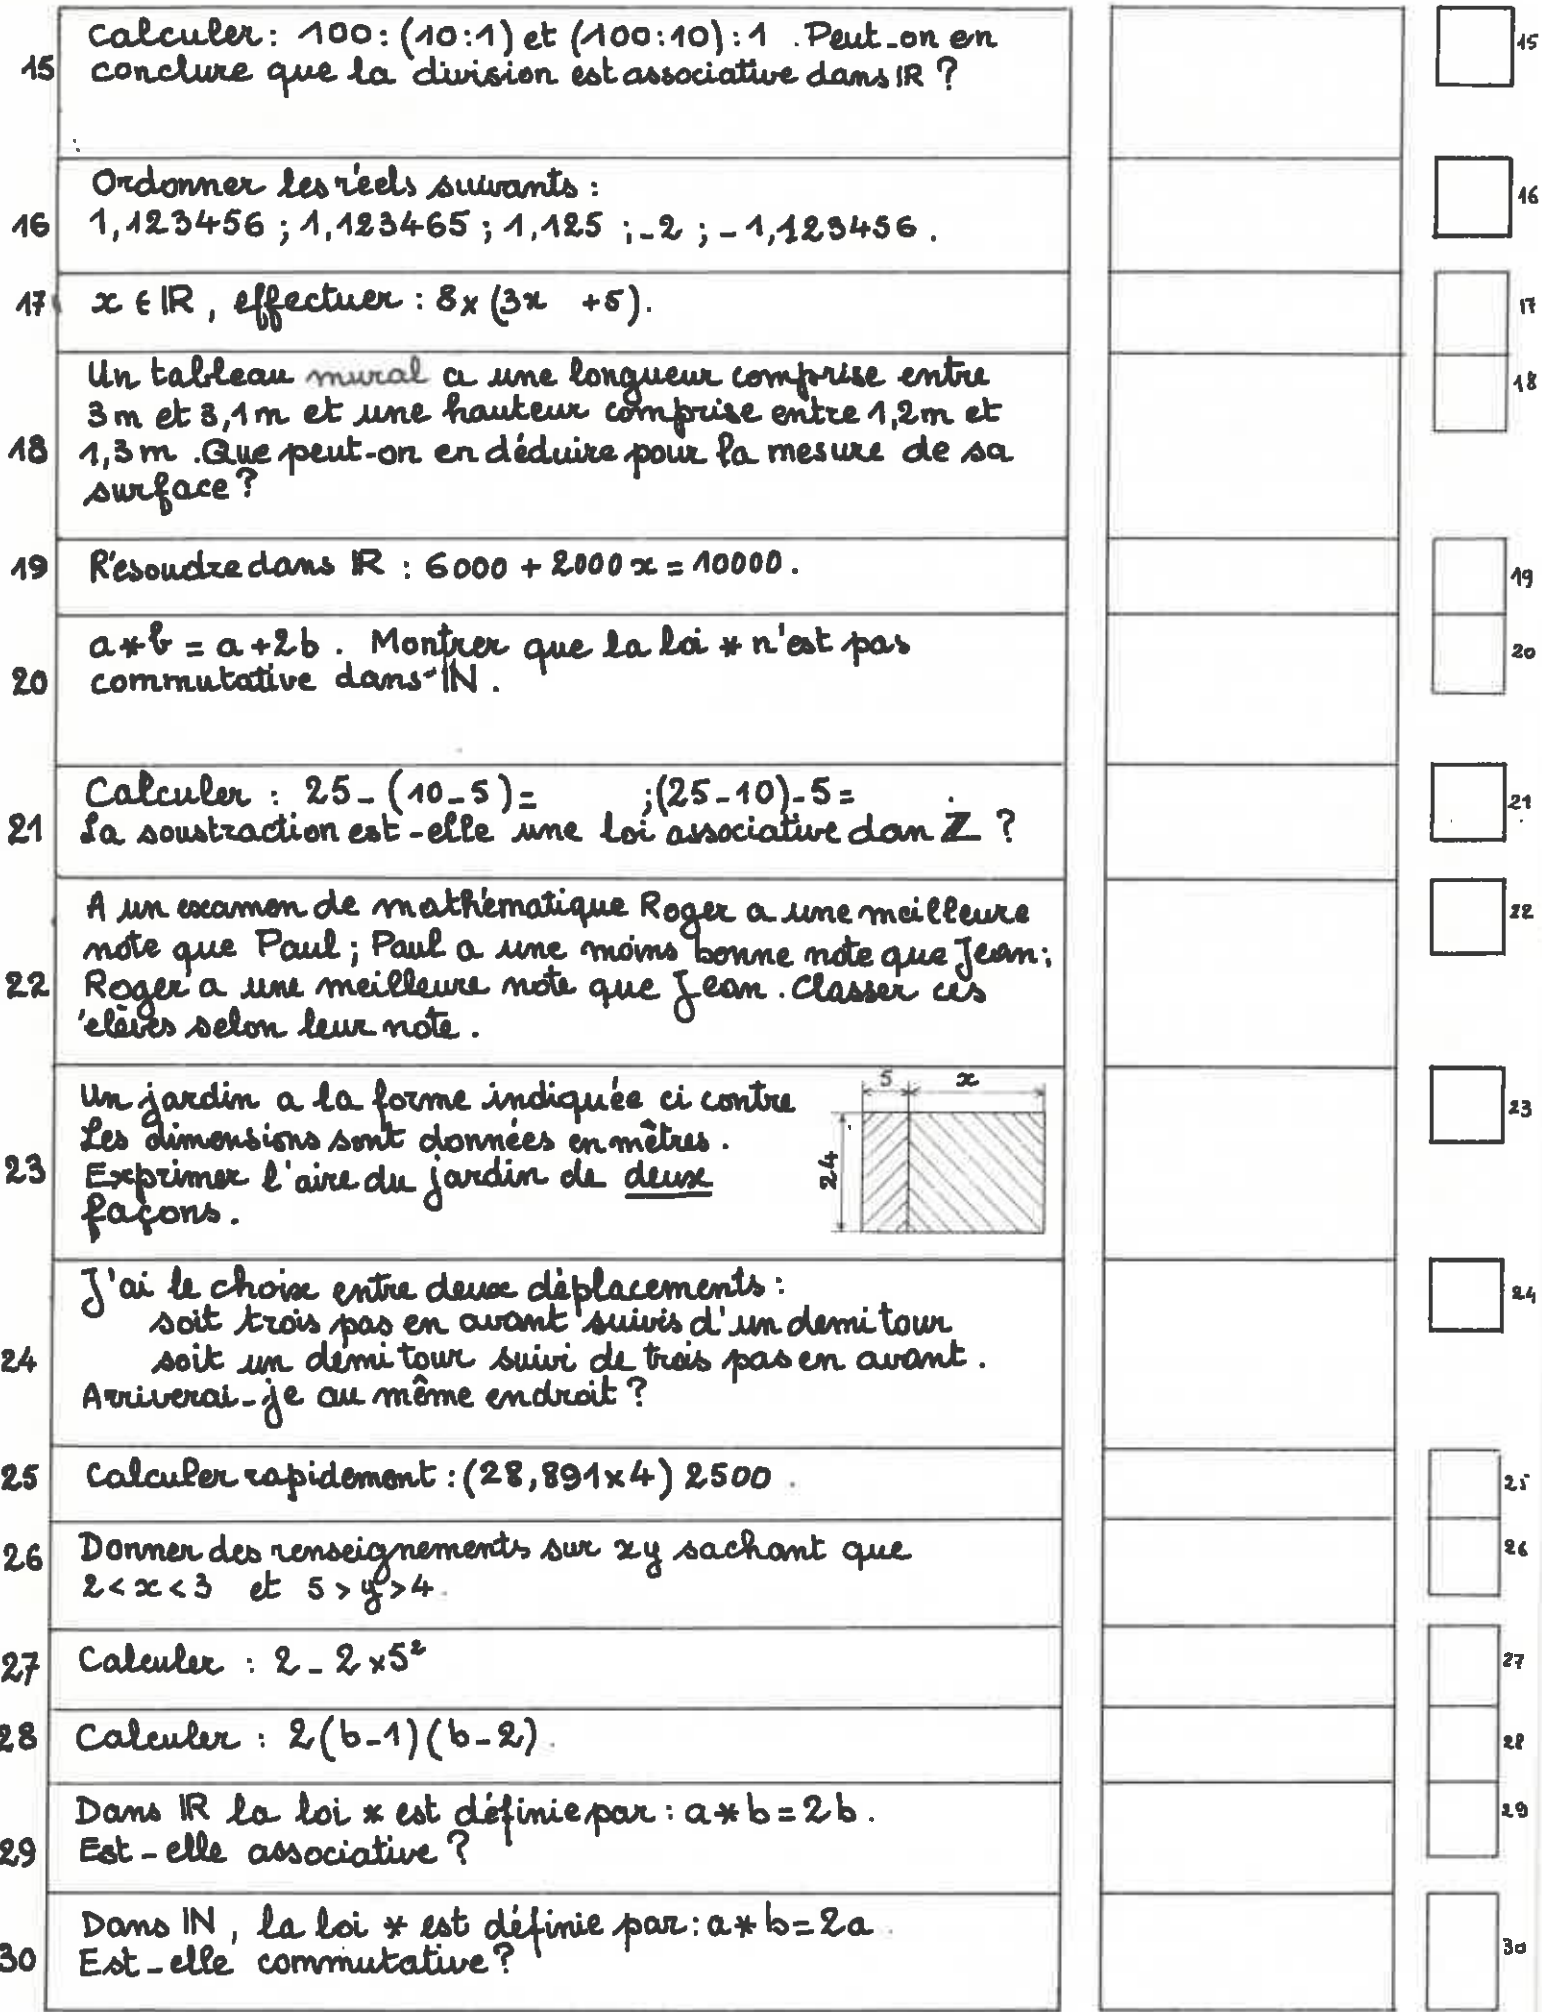 Calculer : 100 : (10:1) et (100:10) : 1 . Peut-on en
15 conclure que la division est associative dans IR ? 15
Ordonner les réels suivants : 16
16 1,123456 ; 1,123465 ; 1,125 ; -2 ; -1,123456 .
17 x ∈ IR, effectuer : 8 x (3x +5). 17
Un tableau mural a une longueur comprise entre 18
3 m et 3,1 m et une hauteur comprise entre 1,2 m et
18 1,3 m . Que peut-on en déduire pour la mesure de sa
surface ?
19 Résoudre dans IR : 6000 + 2000 x = 10000 . 19
a * b = a + 2b . Montrer que la loi * n'est pas 20
20 commutative dans IN .
Calculer : 25 - (10 - 5) = ; (25 - 10) - 5 = 21
21 La soustraction est-elle une loi associative dan Z ?
A un examen de mathématique Roger a une meilleure 22
note que Paul ; Paul a une moins bonne note que Jean ;
22 Roger a une meilleure note que Jean . Classer ces
élèves selon leur note .
5 x
Un jardin a la forme indiquée ci contre 23
Les dimensions sont données en mètres .
23 Exprimer l'aire du jardin de deux 24
façons .
J'ai le choix entre deux déplacements : 24
soit trois pas en avant suivis d'un demi tour
24 soit un demi tour suivi de trois pas en avant .
Arriverai-je au même endroit ?
25 Calculer rapidement : (28,891 x 4) 2500 . 25
26 Donner des renseignements sur xy sachant que 26
2 < x < 3 et 5 > y > 4 .
27 Calculer : 2 - 2 x 5² 27
28 Calculer : 2 (b-1) (b-2) . 28
Dans IR la loi * est définie par : a * b = 2b . 29
29 Est-elle associative ?
Dans IN, la loi * est définie par : a * b = 2a .
30 Est-elle commutative ? 30